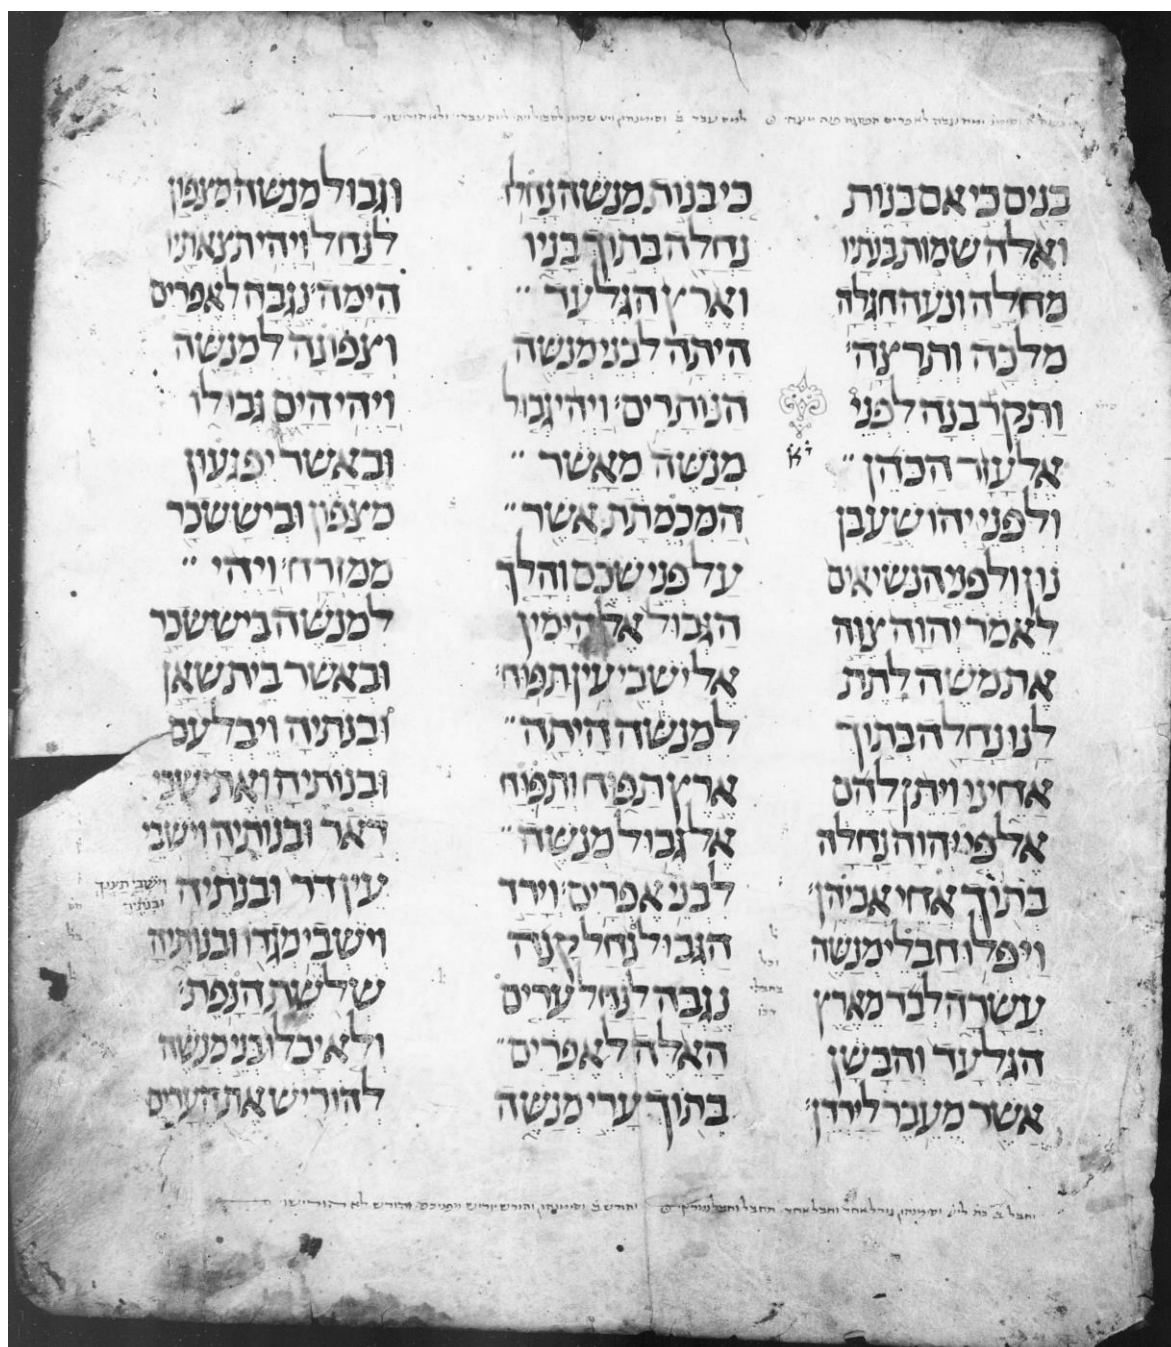 בנים כי אם בנות
ואלה שמות בנתיו
מחלה ונעה חגלה
מלכה ותרצה׃
ותקרבנה לפני
אלעזר הכהן
ולפני יהושע בן
נון ולפני הנשיאים
לאמר יהוה צוה
את משה לתת
לנו נחלה בתוך
אחינו ויתן להם
אל פי יהוה נחלה
בתוך אחי אביהן׃
ויפלו חבלי מנשה
עשרה לבד מארץ
הגלעד והבשן
אשר מעבר לירדן׃
כי בנות מנשה נחלו
נחלה בתוך בניו
וארץ הגלעד
היתה לבני מנשה
הנותרים׃ ויהי גבול
מנשה מאשר
המכמתת אשר
על פני שכם והלך
הגבול אל הימין
אל ישבי עין תפוח׃
למנשה היתה
ארץ תפוח ותפוח
אל גבול מנשה
לבני אפרים׃ וירד
הגבול נחל קנה
נגבה לנחל ערים
האלה לאפרים
בתוך ערי מנשה
וגבול מנשה מצפון
לנחל ויהי תצאתיו
הימה׃ נגבה לאפרים
וצפונה למנשה
ויהי הים גבולו
ובאשר יפגעון
מצפון וביששכר
ממזרח׃ ויהי
למנשה ביששכר
ובאשר בית שאן
ובנתיה ויבלעם
ובנותיה ואת ישבי
דאר ובנותיה וישבי
עין דר ובנתיה
וישבי תענך
ובנתיה
וישבי מגדו ובנותיה
שלשת הנפת׃
ולא יכלו בני מנשה
להוריש את הערים
וסימנהון גורל אחד וחבל אחד והורש ב וסימנהון והורש לא הורישו